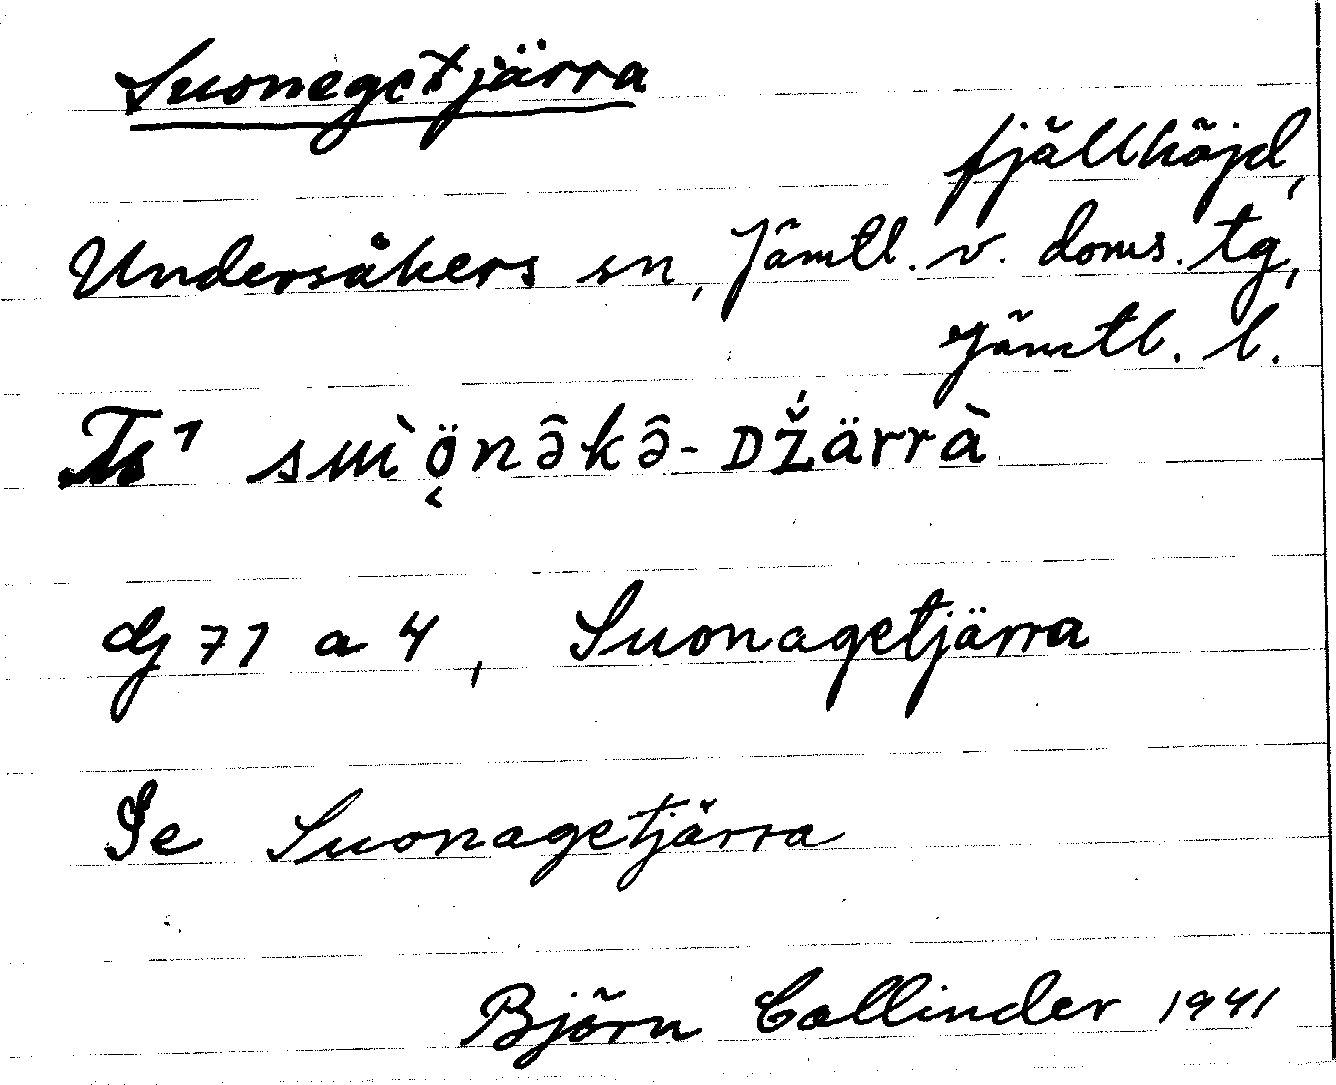 Suonegetjärra
fjällhöjd,
Undersåkers sn, Jämtl. v. doms. tg,
Jämtl. l.
dj 71 a 4, Suonagetjärra
Se Suonagetjärra
Björn Collinder 1941